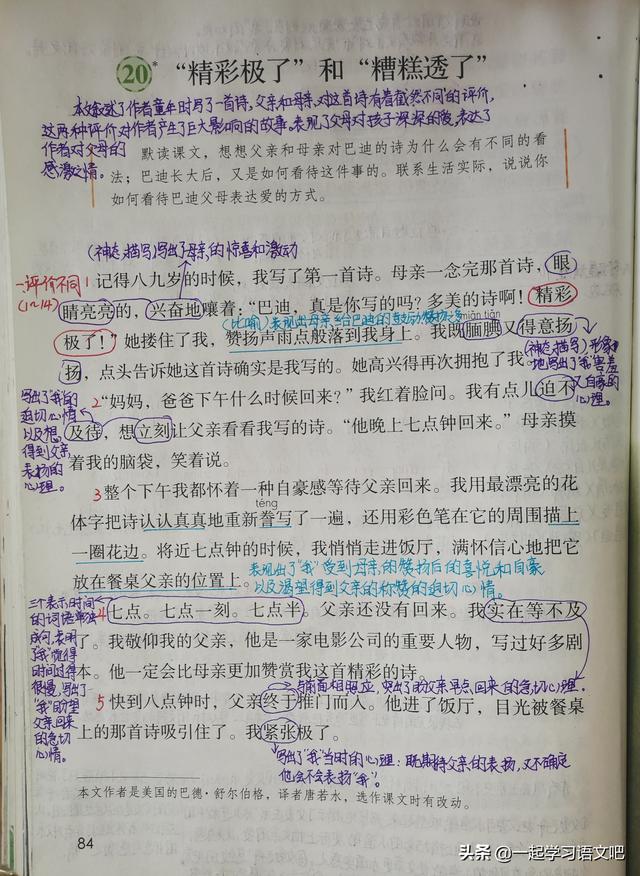 20* “精彩极了”和“糟糕透了”
本文叙述了作者童年时写了一首诗，父亲和母亲对这首诗有着截然不同的评价，
这两种评价对作者产生了巨大影响的故事。表现了父母对孩子深深的爱，表达了
作者对父母的
感激之情。
默读课文，想想父亲和母亲对巴迪的诗为什么会有不同的看
法；巴迪长大后，又是如何看待这件事的。联系生活实际，说说你
如何看待巴迪父母表达爱的方式。
(神态描写)写出了母亲的惊喜和激动
一评价不同
(1~14)
1 记得八九岁的时候，我写了第一首诗。母亲一念完那首诗，眼
睛亮亮的，兴奋地嚷着：“巴迪，真是你写的吗？多美的诗啊！精彩
(比喻)表现出母亲给巴迪的鼓励赞扬之多
miǎn tiǎn
极了！”她搂住了我，赞扬声雨点般落到我身上。我既腼腆又得意扬
扬，点头告诉她这首诗确实是我写的。她高兴得再次拥抱了我。
(神态描写)形象
地写出了“我”害羞
又自豪的
心理。
2 “妈妈，爸爸下午什么时候回来？”我红着脸问。我有点儿迫不
及待，想立刻让父亲看看我写的诗。“他晚上七点钟回来。”母亲摸
着我的脑袋，笑着说。
写出了“我”的
迫切心情
以及想
得到父亲
表扬的
心理。
3 整个下午我都怀着一种自豪感等待父亲回来。我用最漂亮的花
téng
体字把诗认认真真地重新誊写了一遍，还用彩色笔在它的周围描上
一圈花边。将近七点钟的时候，我悄悄走进饭厅，满怀信心地把它
放在餐桌父亲的位置上。
表现出了“我”受到母亲的赞扬后的喜悦和自豪
以及渴望得到父亲的称赞的迫切心情。
4 七点。七点一刻。七点半。父亲还没有回来。我实在等不及
了。我敬仰我的父亲，他是一家电影公司的重要人物，写过好多剧
本。他一定会比母亲更加赞赏我这首精彩的诗。
三个表示时间
的词语单独
成句，表明
“我”觉得
时间过得
很慢，写出了
“我”盼望
父亲回来
的急切
心情。
与前面相照应，突出了盼父亲早点回来的急切心理。
5 快到八点钟时，父亲终于推门而入。他进了饭厅，目光被餐桌
上的那首诗吸引住了。我紧张极了。
写出了“我”当时的心理：既期待父亲的表扬，又不确定
他会不会表扬“我”。
本文作者是美国的巴德·舒尔伯格，译者唐若水，选作课文时有改动。
84
头条 @一起学习语文吧